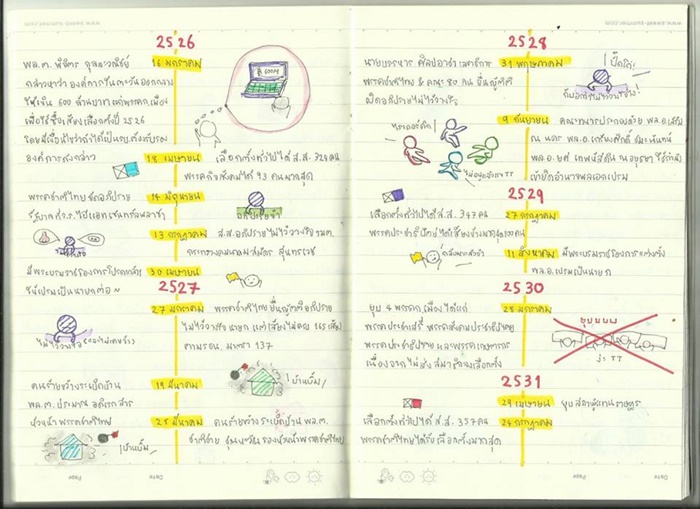 2526
16 มกราคม
พล.ต.
กล่าวหาว่า องค์การ
ใช้เงิน 600 ล้านบาท แก่พรรคการเมือง
เพื่อใช้ซื้อเสียงเลือกตั้งปี 2526
องค์การดังกล่าว
฿ 600M
18 เมษายน
เลือกตั้งทั่วไปได้ ส.ส. 324 คน
พรรคกิจสังคมได้ 93 คน มากสุด
14 มิถุนายน
พรรคชาติไทย ขออภิปราย
13 กรกฎาคม
ส.ส. อภิปรายไม่ไว้วางใจ รมต.
กระทรวงคมนาคม สมัคร สุนทรเวช
30 เมษายน
มีพระบรมราชโองการโปรดเกล้าฯ
ให้เปรมเป็นนายกต่อ ~
2527
27 มกราคม
พรรคชาติไทยยื่นญัตติอภิปราย
ไม่ไว้วางใจ นายก (แต่เสียงไม่ครบ 163 เสียง
ตามรธน. มาตรา 137
ไม่ไว้วางใจ
19 มีนาคม
คนร้ายขว้างระเบิดบ้าน
พล.ต. ประมาณ อดิเรกสาร
หัวหน้าพรรคชาติไทย
บ้านบึ้ม!
25 มีนาคม
คนร้ายขว้างระเบิดบ้าน พล.ต.
ชาติชาย ชุณหะวัณ รองหัวหน้าพรรคชาติไทย
บ้านบึ้ม!
2528
31 พฤษภาคม
นายบรรหาร ศิลปอาชา เลขาธิการ
พรรคชาติไทย & คณะ 80 คน ยื่นญัตติ
เปิดอภิปรายไม่ไว้วางใจ
9 กันยายน
คณะทหารประกอบด้วย พล.อ.เสริม
ณ นคร พล.อ.เกรียงศักดิ์ ชมะนันทน์
พล.อ. ยศ เทพหัสดิน ณ อยุธยา
เข้ายึดอำนาจพลเอกเปรม
2529
27 กรกฎาคม
เลือกตั้งทั่วไปได้ ส.ส. 347 คน
พรรคประชาธิปัตย์ได้เสียงข้างมาก 100 คน
11 สิงหาคม
มีพระบรมราชโองการแต่งตั้ง
พล.อ.เปรมเป็นนายก
กลับมาแล้วจ้า
2530
28 มกราคม
ยุบ 4 พรรคการเมือง ได้แก่
พรรคประชาเสรี พรรคสังคมประชาธิปไตย
พรรคประชาธิปไตย และพรรคเกษตรกร
เนื่องจากไม่ส่งสมาชิกลงเลือกตั้ง
2531
29 เมษายน
ยุบสภาผู้แทนราษฎร
24 กรกฎาคม
เลือกตั้งทั่วไปได้ ส.ส. 357 คน
พรรคชาติไทยได้รับเลือกตั้งมากสุด
Date
Page
Page
Date